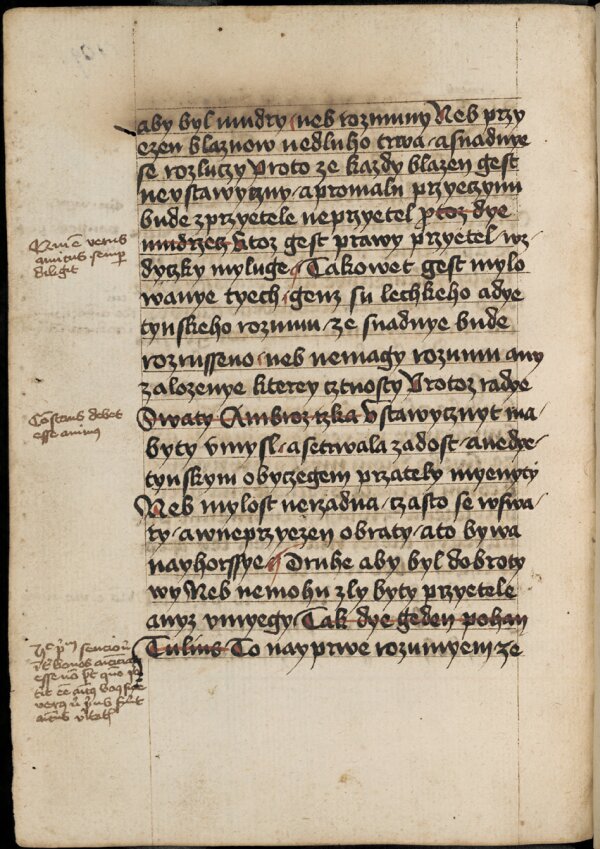 aby byl mudry neb rozumny Neb przy
ezen blaznow nedluho trwa a snadnye
se rozluczy Proto ze kazdy blazen gest
neustawyczny a promalu przyeczynu
bude zprzyetele neprzyetel Protoz dye
mudrzecz Ktoz gest prawy przyetel wz
dyczky myluge Takowet gest mylo
wanye tyech genz su lechkeho a dye
tynskeho rozumu ze snadnye bude
rozrusseno neb nemagy rozumu any
zalozenye kterey cztnosty Protoz radye
Swaty Ambroz rzka Vstawycznyt ma
byty vmysl a setrwala zadost a nedye
tynskym obyczegem przately myenyty
Neb mylost nerzadna czasto se wswa
ry a w neprzyezen obraty a to bywa
nayhorssye Druhe aby byl dobroty
wy Neb nemohu zly byty przyetele
anyz vmyegy Tak dye geden pohan
Tulius To nayprwe rozumyem ze
Qui est verus
amicus semper
diligit
Constans debet
esse animus